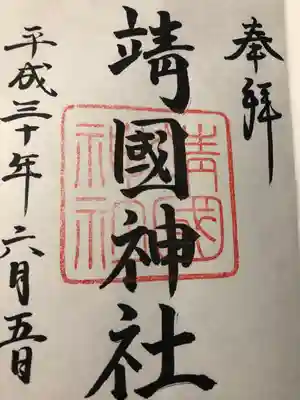 奉拝
靖國神社
靖國神社
平成三十年六月五日